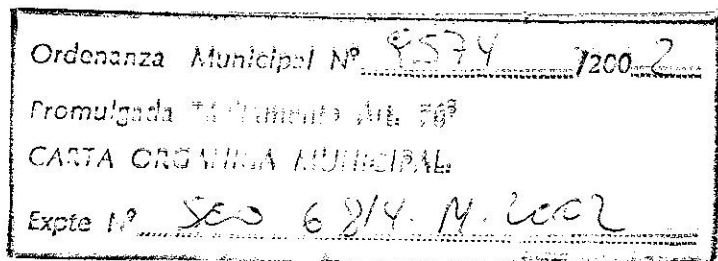 Ordenanza Municipal Nº 9574 /2002
Promulgada Tácitamente Art. 76º
CARTA ORGANICA MUNICIPAL
Expte Nº SEO 6814. M. 2002